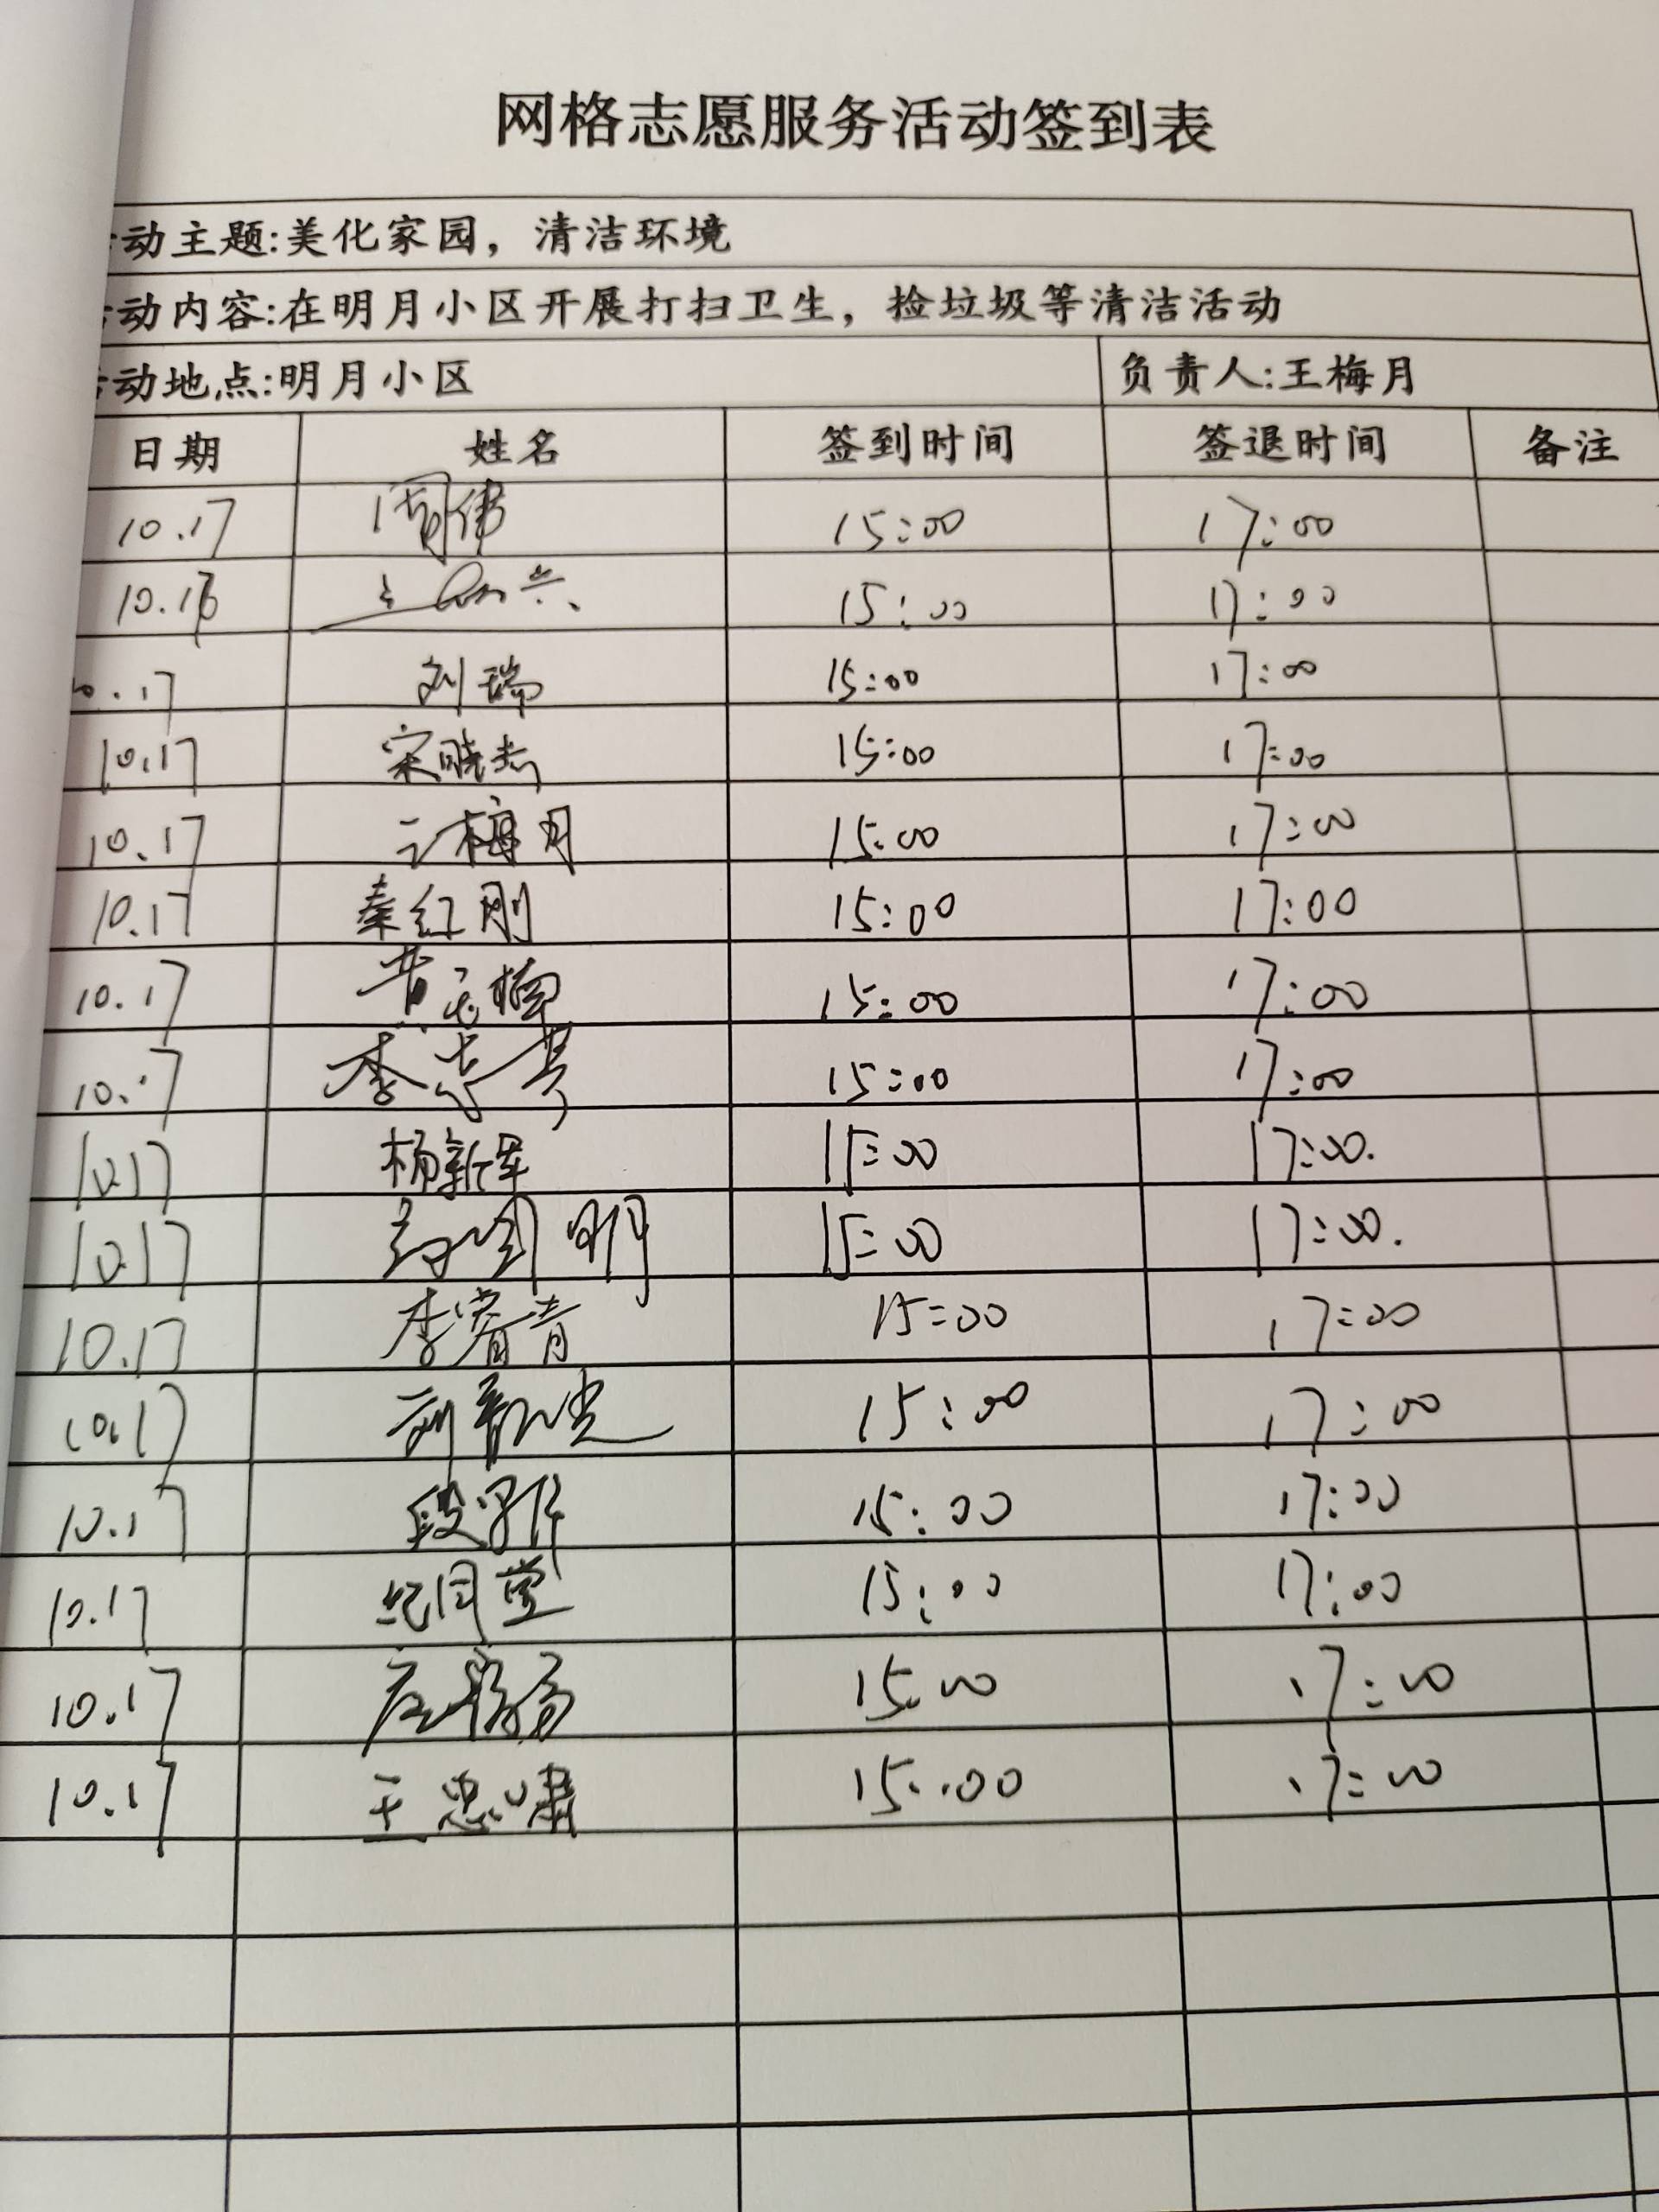 网格志愿服务活动签到表
动主题:美化家园，清洁环境
动内容:在明月小区开展打扫卫生，捡垃圾等清洁活动
动地点:明月小区 负责人:王梅月
日期 姓名 签到时间 签退时间 备注
10.17 周伟 15:00 17:00
15:00 17:00
10.17 刘瑞 15:00 17:00
10.17 宋晓杰 15:00 17:00
10.17 王梅月 15:00 17:00
10.17 秦红刚 15:00 17:00
10.17 15:00 17:00
10.17 李 15:00 17:00
10.17 杨新军 15:00 17:00.
10.17 明 15:00 17:00.
10.17 李睿青 15:00 17:00
10.17 刘 15:00 17:00
10.17 段 15:00 17:00
10.17 纪同堂 15:00 17:00
10.17 15:00 17:00
10.17 王忠啸 15:00 17:00